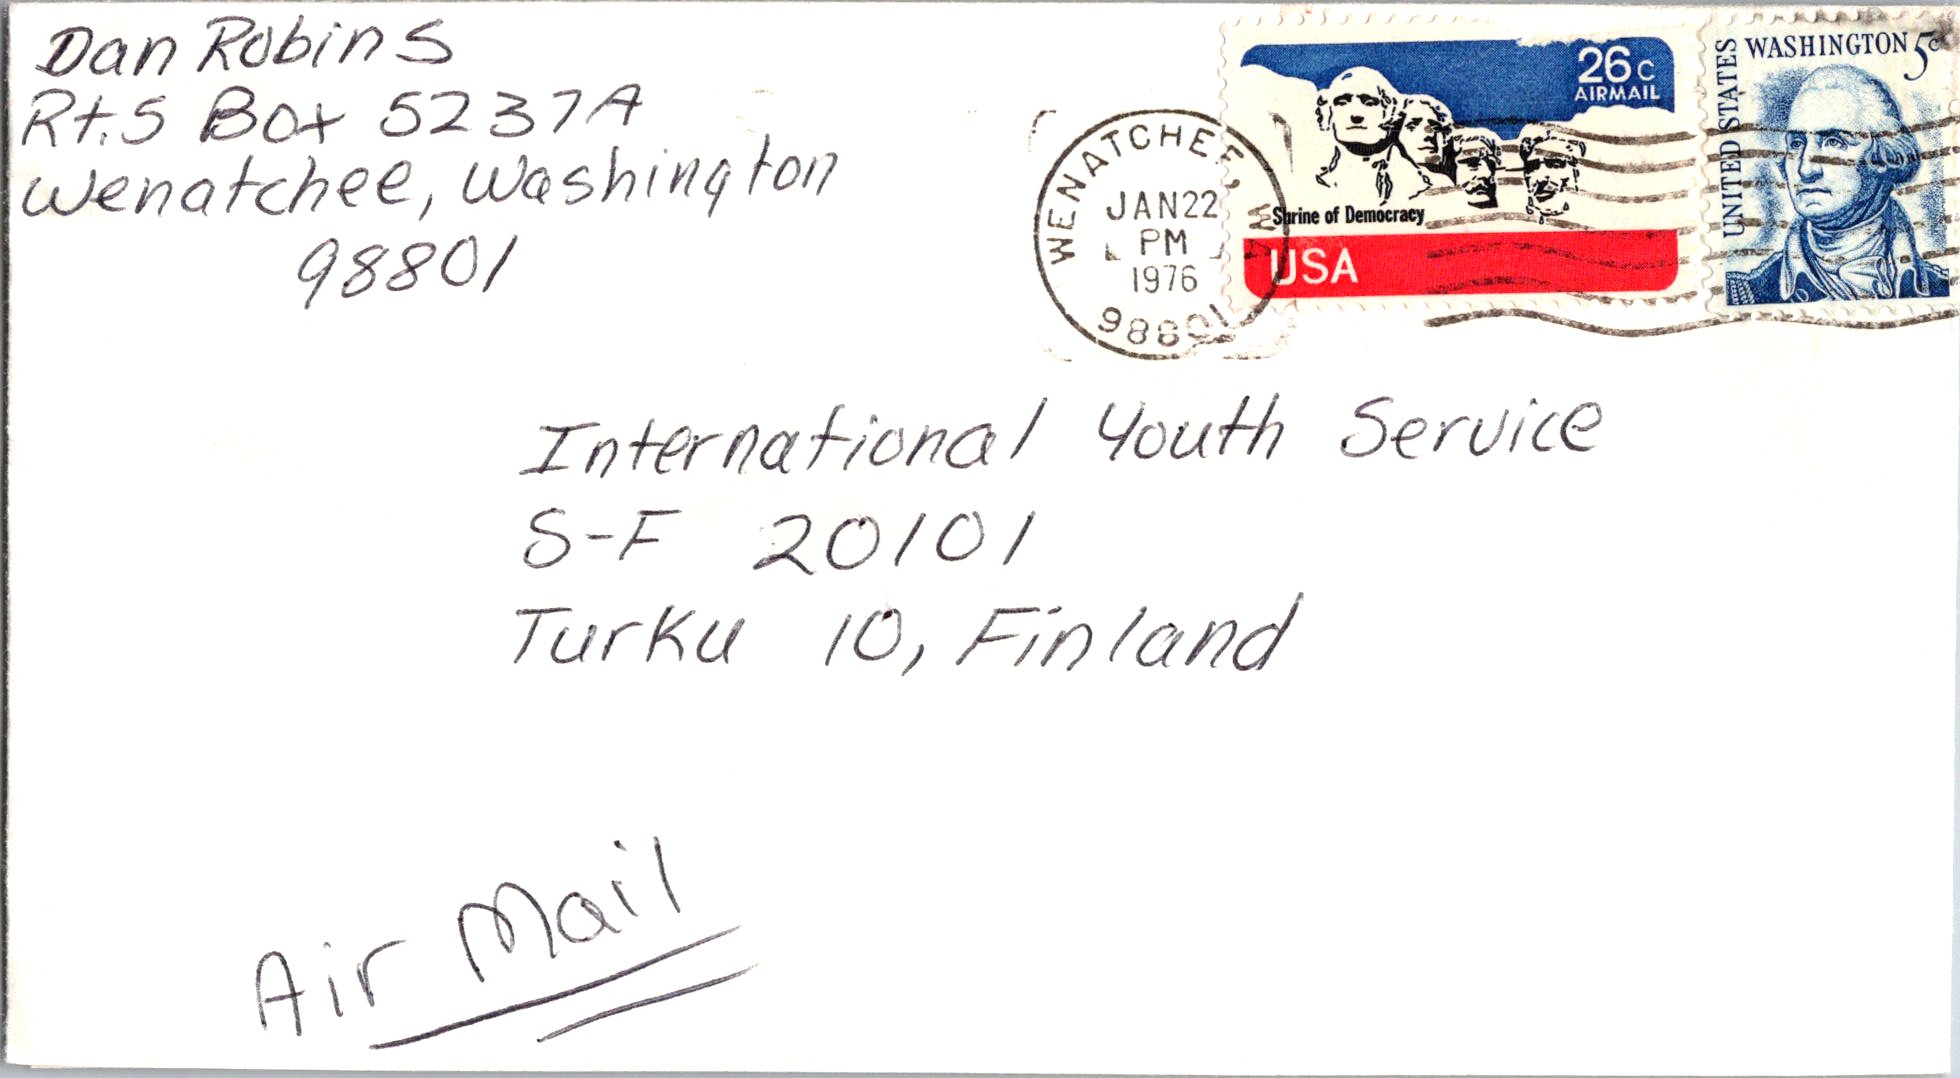 Dan Robins
Rt. 5 Box 5237A
Wenatchee, Washington
98801
WENATCHEE, WA
JAN 22
PM
1976
98801
26c
AIRMAIL
Shrine of Democracy
USA
UNITED STATES
WASHINGTON 5c
International Youth Service
S-F 20101
Turku 10, Finland
Air Mail